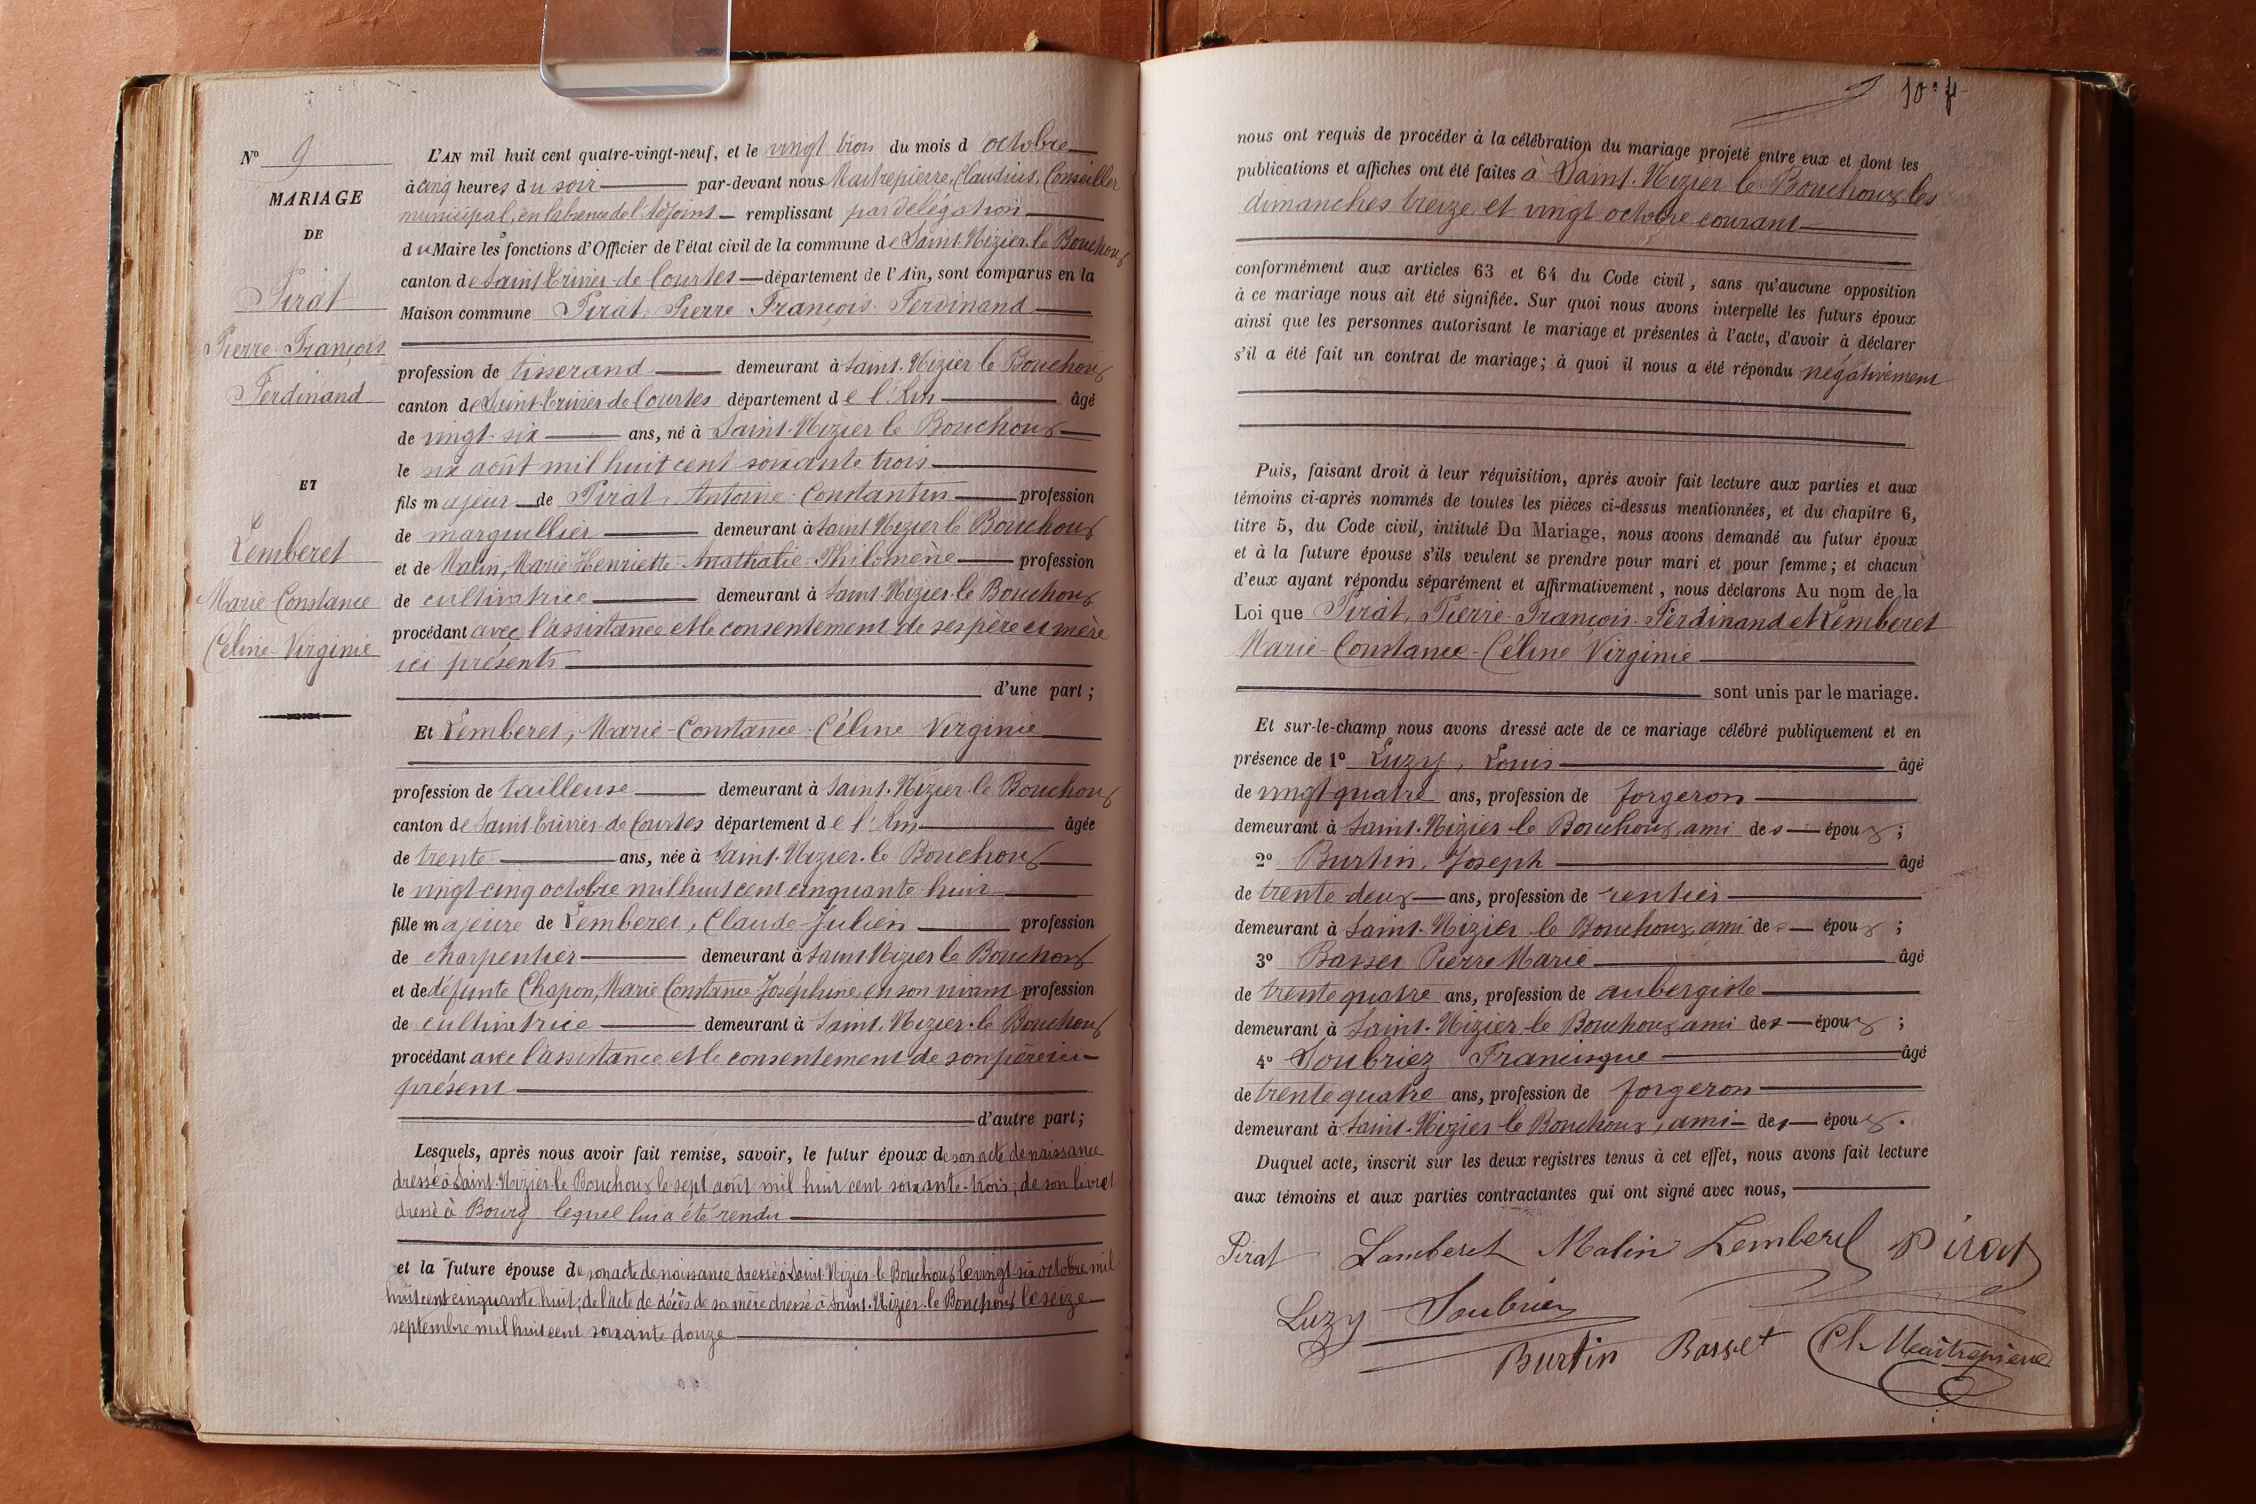 N° 9
MARIAGE
DE
Pirat
Pierre François
Ferdinand
ET
Lemberet
Marie Constance
Céline Virginie
L'AN mil huit cent quatre-vingt-neuf, et le vingt trois du mois d'octobre
à cinq heures du soir par-devant nous Maitrepierre, Claudius, Conseiller
municipal, en l'absence de l'adjoint remplissant par délégation
du Maire les fonctions d'Officier de l'état civil de la commune de Saint-Nizier-le Bouchoux
canton de Saint Trivier-de Courtes département de l'Ain, sont comparus en la
Maison commune Pirat, Pierre François Ferdinand
profession de tisserand demeurant à Saint-Nizier le Bouchoux
canton de Saint-Trivier de Courtes département de l'Ain âgé
de vingt-six ans, né à Saint-Nizier le Bouchoux
le six août mil huit cent soixante trois
fils majeur de Pirat, Antoine Constantin profession
de marguillier demeurant à Saint Nizier le Bouchoux
et de Malin, Marie-Henriette-Anathalie-Philomène profession
de cultivatrice demeurant à Saint Nizier-le Bouchoux
procédant avec l'assistance et le consentement de ses père et mère
ici présents
d'une part ;
Et Lemberet, Marie-Constance-Céline Virginie
profession de tailleuse demeurant à Saint-Nizier-le Bouchoux
canton de Saint Trivier-de Courtes département de l'Ain âgée
de trente ans, née à Saint-Nizier-le Bouchoux
le vingt cinq octobre mil huit cent cinquante-huit
fille majeure de Lemberet, Claude-Julien profession
de charpentier demeurant à Saint Nizier le Bouchoux
et de défunte Chapon, Marie Constance Joséphine, en son vivant profession
de cultivatrice demeurant à Saint-Nizier-le Bouchoux
procédant avec l'assistance et le consentement de son père ici
présent
d'autre part ;
Lesquels, après nous avoir fait remise, savoir, le futur époux de son acte de naissance
dressé à Saint-Nizier-le Bouchoux le sept août mil huit cent soixante-trois ; de son livret
dressé à Bourg lequel lui a été rendu
et la future épouse de son acte de naissance dressé à Saint-Nizier-le Bouchoux le vingt-six octobre mil
huit cent cinquante huit ; de l'acte de décès de sa mère dressé à Saint-Nizier-le Bouchoux le seize
septembre mil huit cent soixante douze
10e f
nous ont requis de procéder à la célébration du mariage projeté entre eux et dont les
publications et affiches ont été faites à Saint-Nizier le Bouchoux les
dimanches treize et vingt octobre courant
conformément aux articles 63 et 64 du Code civil, sans qu'aucune opposition
à ce mariage nous ait été signifiée. Sur quoi nous avons interpellé les futurs époux
ainsi que les personnes autorisant le mariage et présentes à l'acte, d'avoir à déclarer
s'il a été fait un contrat de mariage ; à quoi il nous a été répondu négativement
Puis, faisant droit à leur réquisition, après avoir fait lecture aux parties et aux
témoins ci-après nommés de toutes les pièces ci-dessus mentionnées, et du chapitre 6,
titre 5, du Code civil, intitulé Du Mariage, nous avons demandé au futur époux
et à la future épouse s'ils veulent se prendre pour mari et pour femme ; et chacun
d'eux ayant répondu séparément et affirmativement, nous déclarons Au nom de la
Loi que Pirat, Pierre-François-Ferdinand et Lemberet
Marie-Constance-Céline Virginie
sont unis par le mariage.
Et sur-le-champ nous avons dressé acte de ce mariage célébré publiquement et en
présence de 1° Luzy, Louis âgé
de vingt quatre ans, profession de forgeron
demeurant à Saint-Nizier le Bouchoux, ami des époux ;
2° Burtin, Joseph âgé
de trente deux ans, profession de rentier
demeurant à Saint-Nizier le Bouchoux, ami des époux ;
3° Basset Pierre Marie âgé
de trente quatre ans, profession de aubergiste
demeurant à Saint-Nizier-le Bouchoux ami des époux ;
4° Soubriez Francisque âgé
de trente quatre ans, profession de forgeron
demeurant à Saint-Nizier-le Bouchoux, ami des époux.
Duquel acte, inscrit sur les deux registres tenus à cet effet, nous avons fait lecture
aux témoins et aux parties contractantes qui ont signé avec nous,
Pirat Lamberet Malin Lemberet Pirat
Luzy Soubriez
Burtin Basset Cl. Maitrepierre